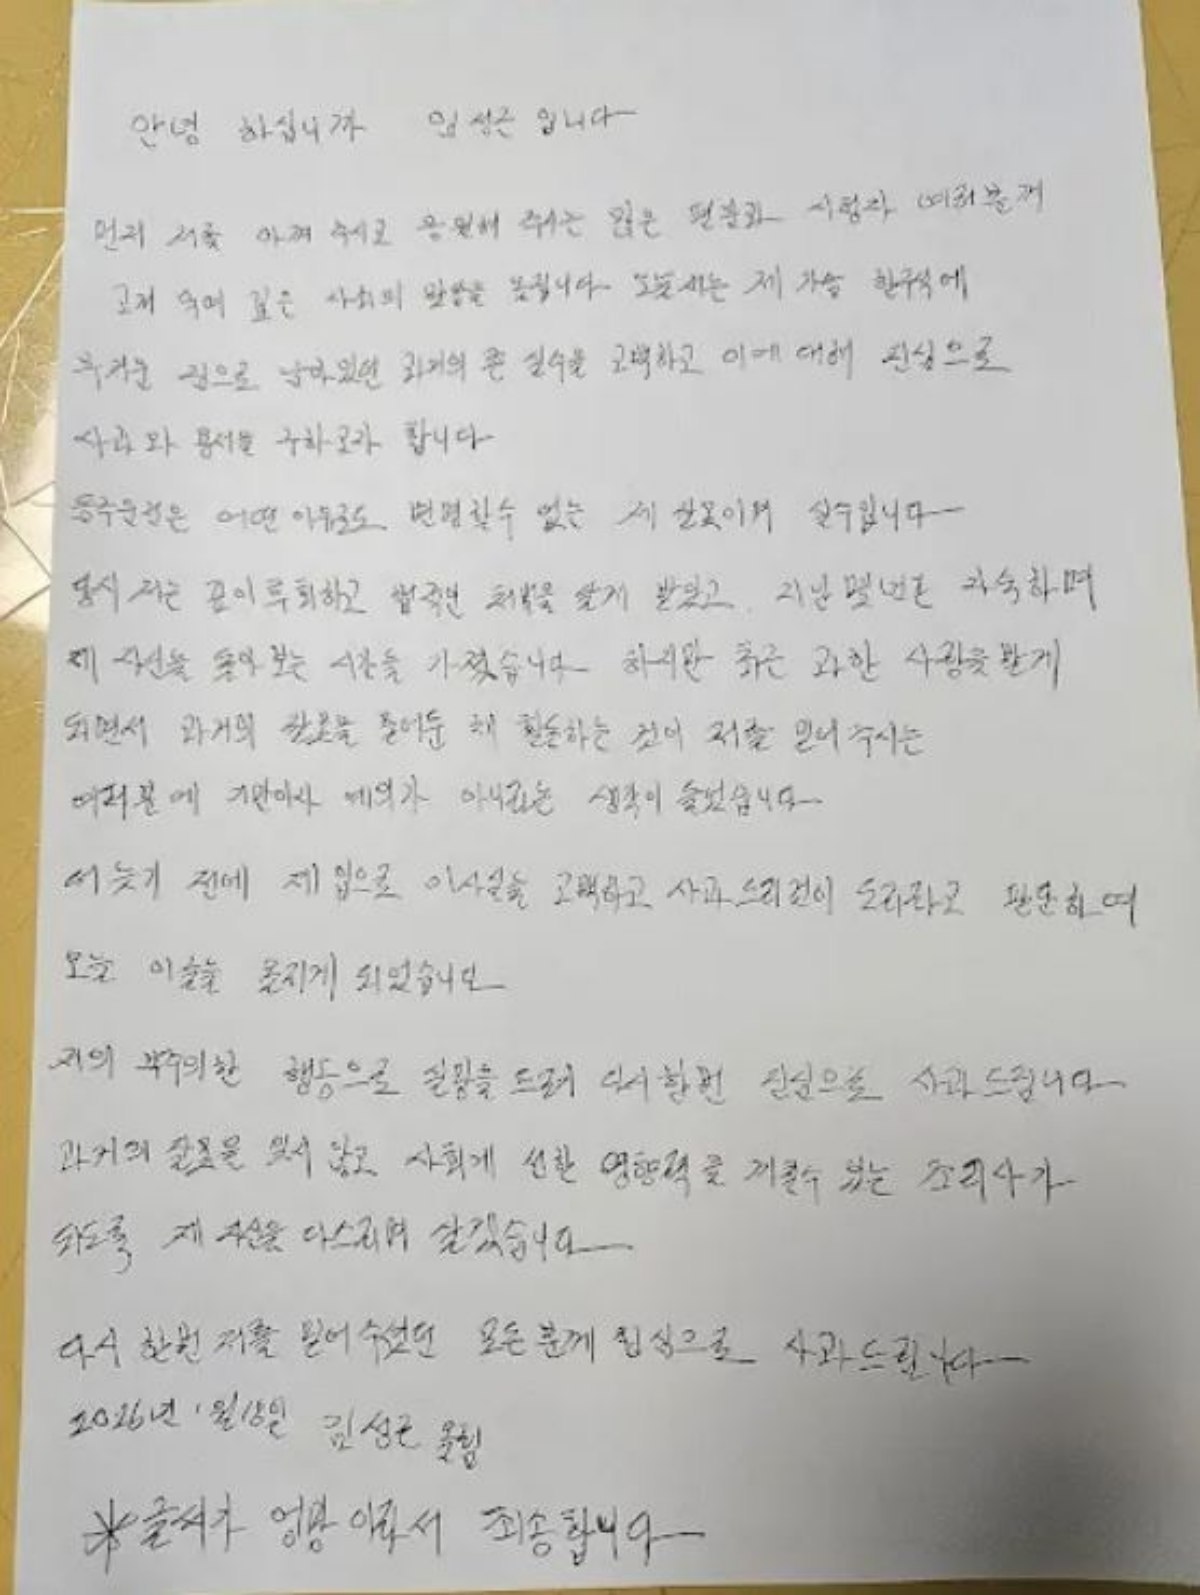 안녕 하십니까 임성근 입니다
먼저 저를 아껴 주시고 응원해 주시는 많은 팬분과 시청자 여러분께
고개 숙여 깊은 사죄의 말씀을 올립니다 오늘 저는 제 가슴 한구석에
무거운 짐으로 남아있던 과거의 큰 실수를 고백하고 이에 대해 진심으로
사과와 용서를 구하고자 합니다
음주운전은 어떤 이유로도 변명할수 없는 제 잘못이며 실수입니다
당시 저는 깊이 후회하고 처벌을 달게 받았고 지난 몇년은 자숙하며
제 자신을 돌아보는 시간을 가졌습니다 하지만 최근 과한 사랑을 받게
되면서 과거의 잘못을 묻어둔 채 활동하는 것이 저를 믿어 주시는
여러분에 기만이자 예의가 아니라는 생각이 들었습니다
더 늦기 전에 제 입으로 이사실을 고백하고 사과드리것이 도리라고 판단하여
오늘 이글을 올리게 되었습니다
저의 부주의한 행동으로 실망을 드려 다시한번 진심으로 사과드립니다
과거의 잘못을 잊지 않고 사회에 선한 영향력을 끼칠수 있는 조리사가
되도록 제 자신을 다스리며 살겠습니다
다시 한번 저를 믿어주셨던 모든분께 진심으로 사과드립니다
2026년 1월18일 임성근 올림
*글씨가 엉망 이라서 죄송합니다